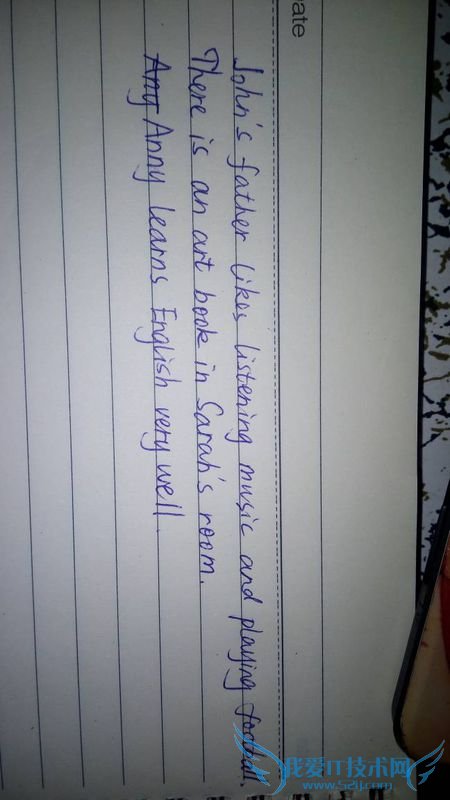 ate
John's father likes listening music and playing football.
There is an art book in Sarah's room.
Any Anny learns English very well.
我爱IT技术网
www.52ij.com